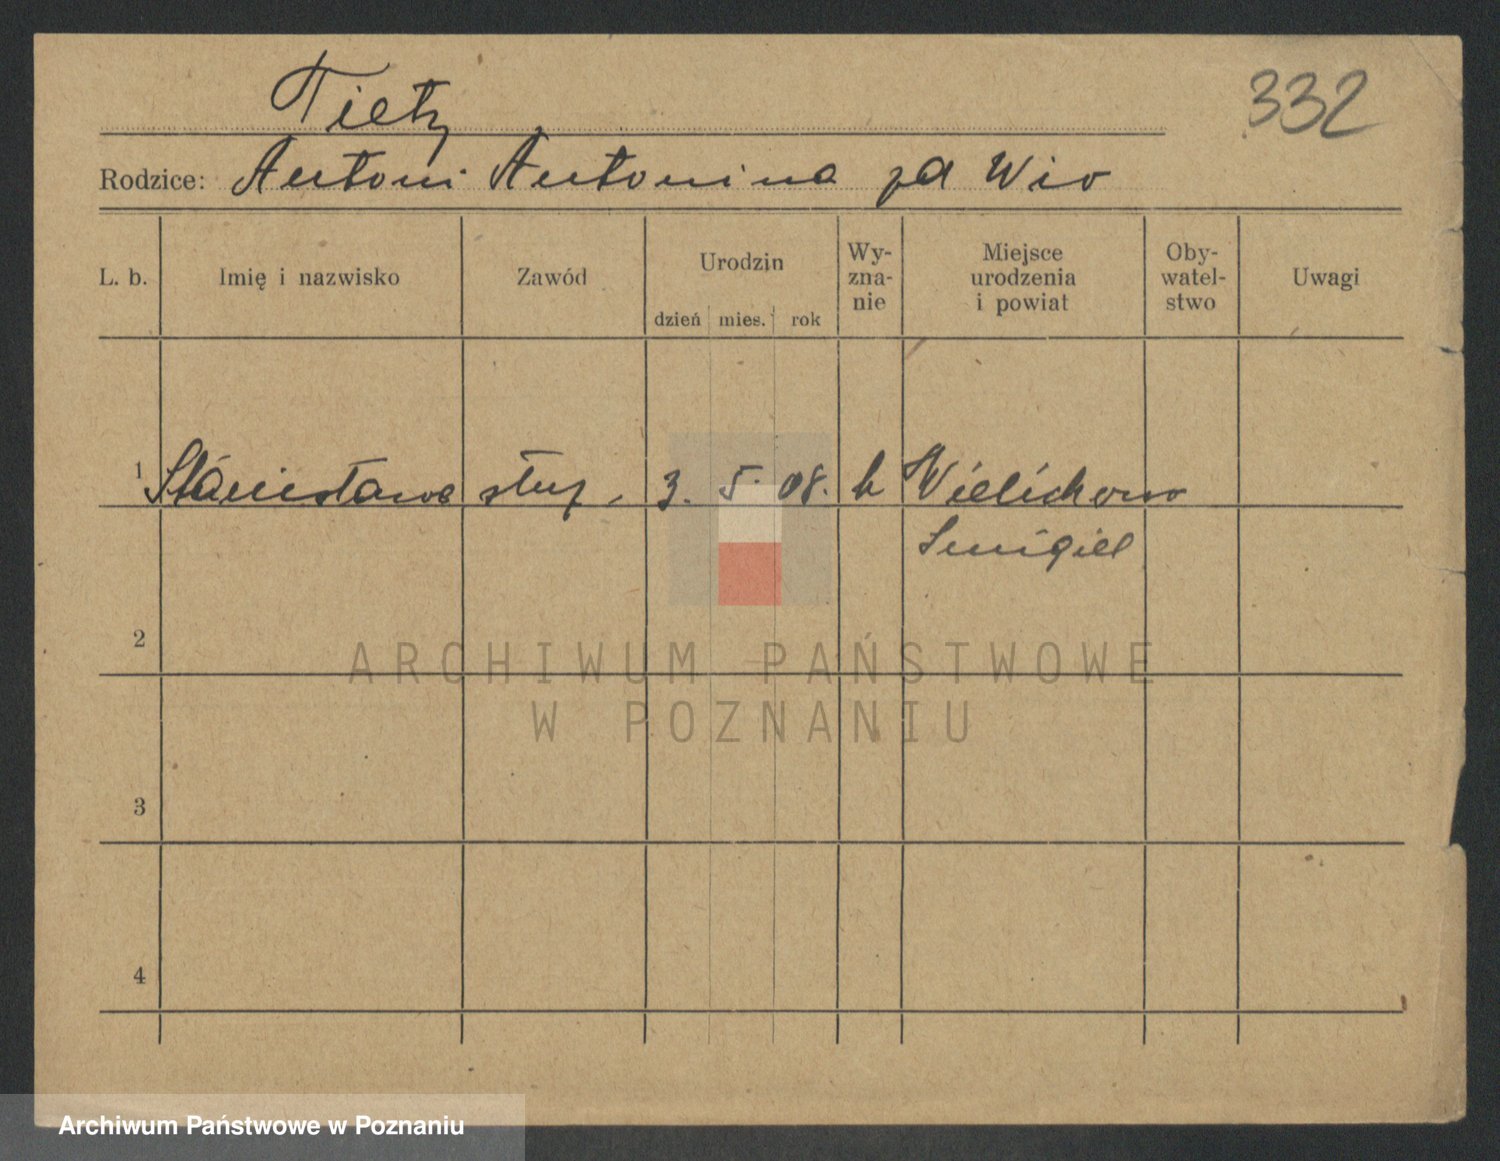 Tietz
332
Rodzice: Antoni Antonina zd Wio
L. b. Imię i nazwisko Zawód Urodzin dzień mies. rok Wyznanie Miejsce urodzenia i powiat Obywatelstwo Uwagi
1 Stanisława służ. 3. 5. 08. k Wielichowo
Smigiel
2
ARCHIWUM PAŃSTWOWE
W POZNANIU
3
4
Archiwum Państwowe w Poznaniu